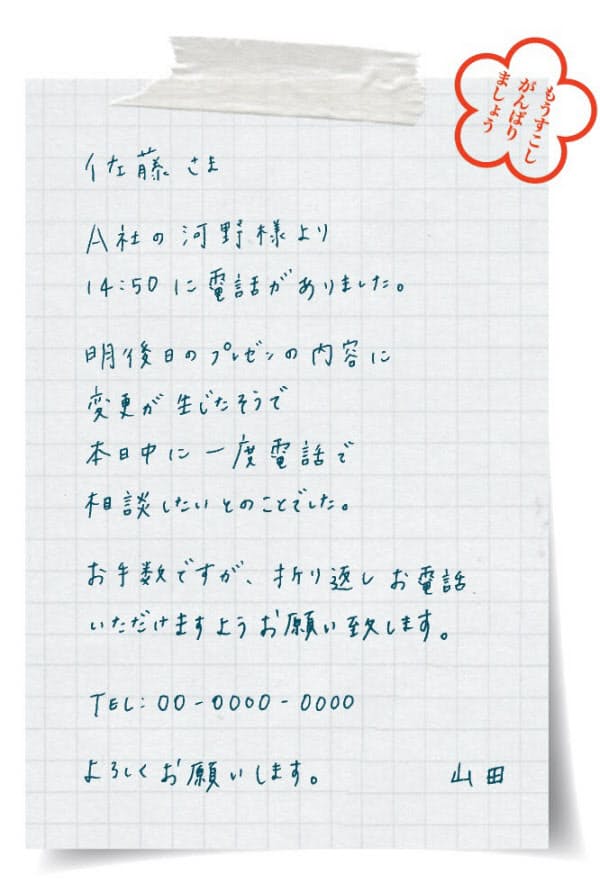 もうすこし
がんばり
ましょう
佐藤さま
A社の河野様より
14:50に電話がありました。
明後日のプレゼンの内容に
変更が生じたそうで
本日中に一度電話で
相談したいとのことでした。
お手数ですが、折り返しお電話
いただけますようお願い致します。
TEL:00-0000-0000
よろしくお願いします。
山田